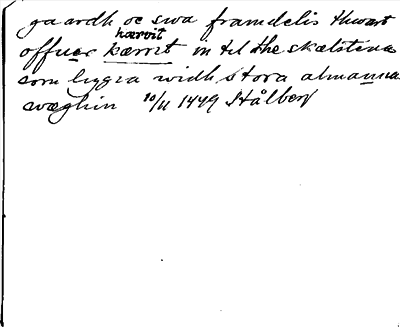 gaardh oc swa framdelis thwært
hærvit
offuer kærrit in til the skælstena
som liggia widh stora almanna
wæghin 10/11 1449 Stålberg